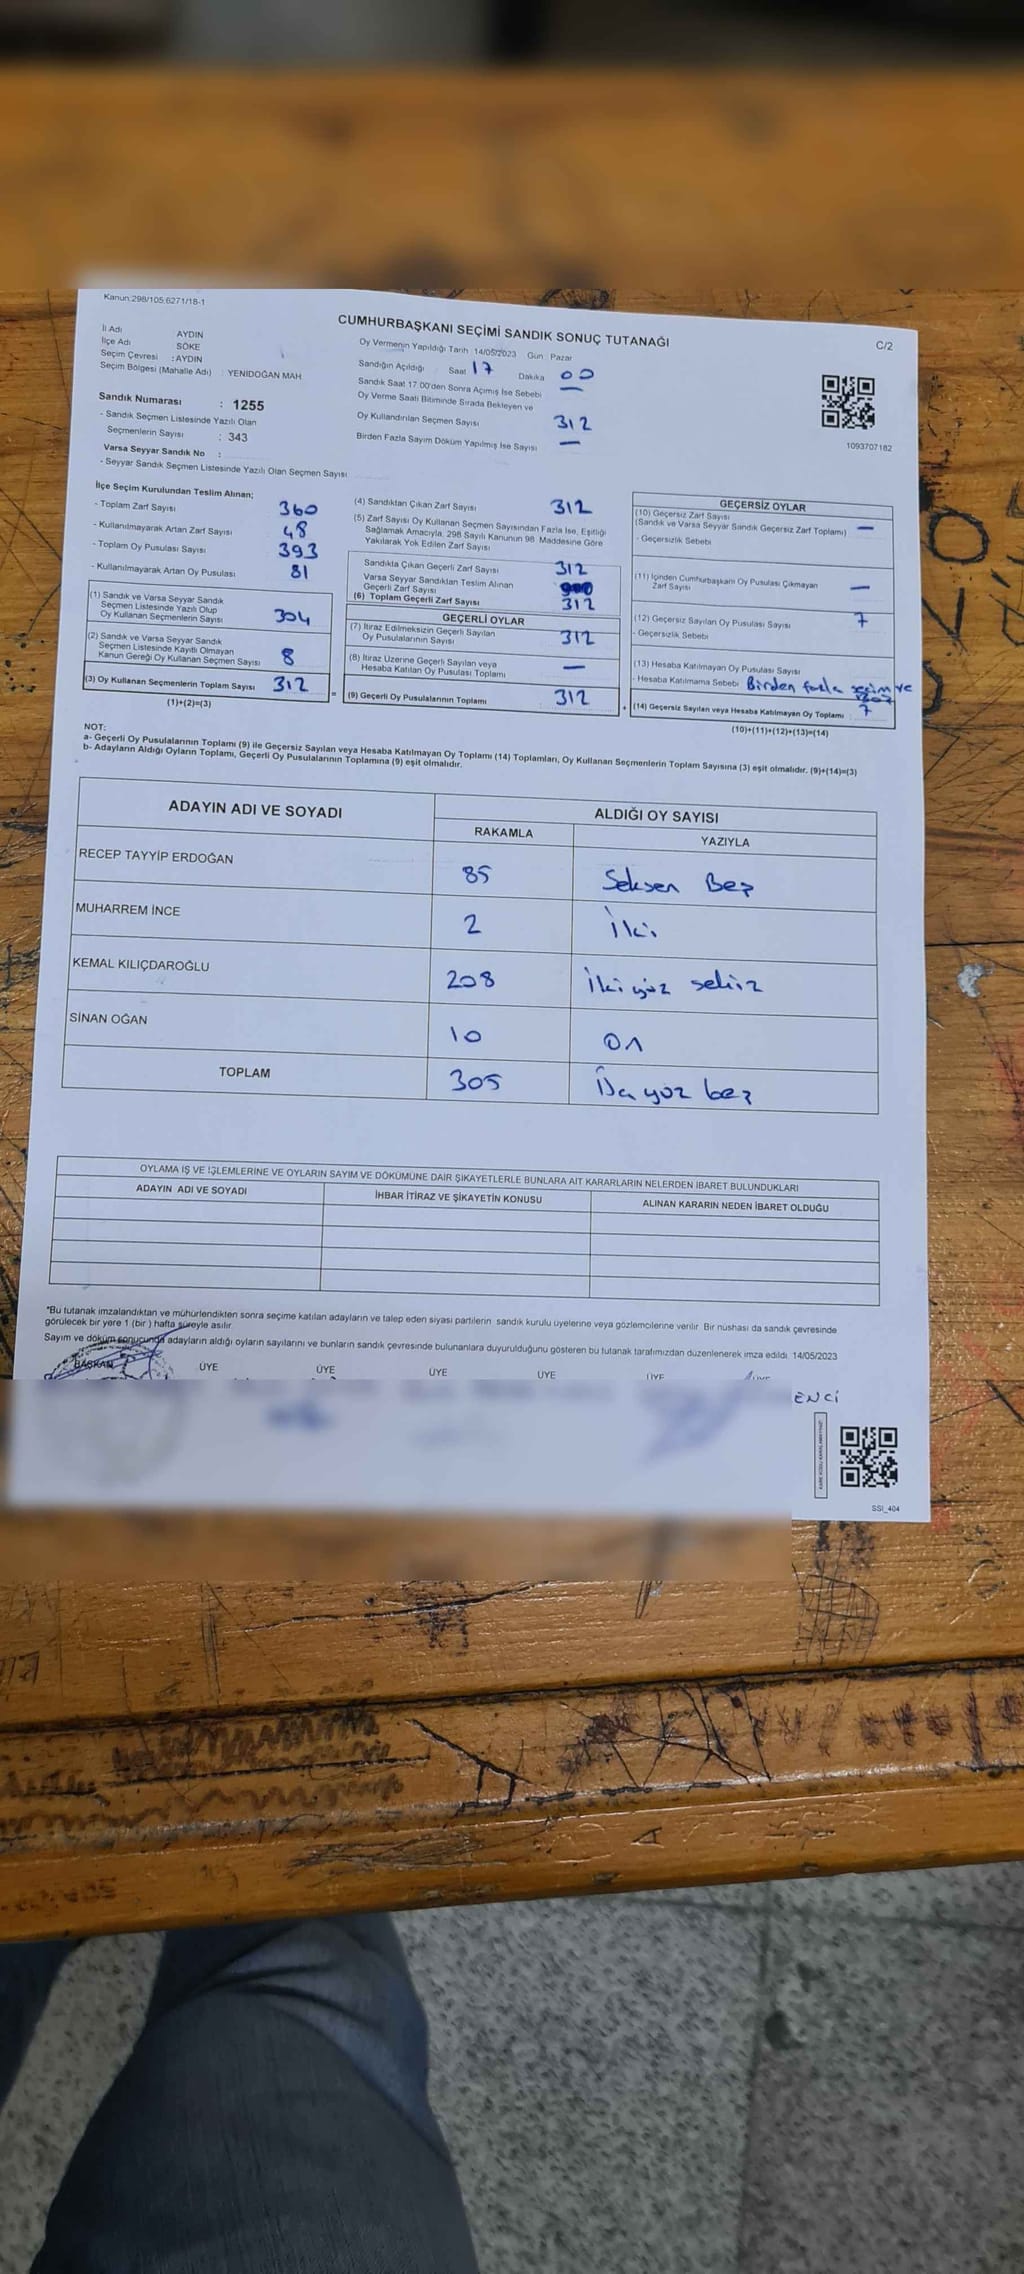 Kanun:298/105;6271/18-1
CUMHURBAŞKANI SEÇİMİ SANDIK SONUÇ TUTANAĞI
C/2
İl Adı AYDIN
İlçe Adı SÖKE
Seçim Çevresi : AYDIN
Seçim Bölgesi (Mahalle Adı) : YENİDOĞAN MAH
Sandık Numarası : 1255
- Sandık Seçmen Listesinde Yazılı Olan
Seçmenlerin Sayısı : 343
Varsa Seyyar Sandık No :
- Seyyar Sandık Seçmen Listesinde Yazılı Olan Seçmen Sayısı
Oy Vermenin Yapıldığı Tarih 14/05/2023 Gün Pazar
Sandığın Açıldığı Saat 17 Dakika 00
Sandık Saat 17.00'den Sonra Açımış İse Sebebi —
Oy Verme Saati Bitiminde Sırada Bekleyen ve
Oy Kullandırılan Seçmen Sayısı 312
Birden Fazla Sayım Döküm Yapılmış İse Sayısı —
1093707182
İlçe Seçim Kurulundan Teslim Alınan;
- Toplam Zarf Sayısı 360
- Kullanılmayarak Artan Zarf Sayısı 48
- Toplam Oy Pusulası Sayısı 393
- Kullanılmayarak Artan Oy Pusulası 81
(1) Sandık ve Varsa Seyyar Sandık
Seçmen Listesinde Yazılı Olup
Oy Kullanan Seçmenlerin Sayısı 304
(2) Sandık ve Varsa Seyyar Sandık
Seçmen Listesinde Kayıtlı Olmayan
Kanun Gereği Oy Kullanan Seçmen Sayısı 8
(3) Oy Kullanan Seçmenlerin Toplam Sayısı 312
(1)+(2)=(3)
(4) Sandıktan Çıkan Zarf Sayısı 312
(5) Zarf Sayısı Oy Kullanan Seçmen Sayısından Fazla İse, Eşitliği
Sağlamak Amacıyla, 298 Sayılı Kanunun 98 Maddesine Göre
Yakılarak Yok Edilen Zarf Sayısı
Sandıkta Çıkan Geçerli Zarf Sayısı 312
Varsa Seyyar Sandıktan Teslim Alınan
Geçerli Zarf Sayısı
(6) Toplam Geçerli Zarf Sayısı 312
GEÇERLİ OYLAR
(7) İtiraz Edilmeksizin Geçerli Sayılan
Oy Pusulalarının Sayısı 312
(8) İtiraz Üzerine Geçerli Sayılan veya
Hesaba Katılan Oy Pusulası Toplamı —
= (9) Geçerli Oy Pusulalarının Toplamı 312 +
GEÇERSİZ OYLAR
(10) Geçersiz Zarf Sayısı
(Sandık ve Varsa Seyyar Sandık Geçersiz Zarf Toplamı) —
- Geçersizlik Sebebi
(11) İçinden Cumhurbaşkanı Oy Pusulası Çıkmayan
Zarf Sayısı —
(12) Geçersiz Sayılan Oy Pusulası Sayısı 7
- Geçersizlik Sebebi
(13) Hesaba Katılmayan Oy Pusulası Sayısı
- Hesaba Katılmama Sebebi Birden fazla seçim ve
(14) Geçersiz Sayılan veya Hesaba Katılmayan Oy Toplamı 7
(10)+(11)+(12)+(13)=(14)
NOT:
a- Geçerli Oy Pusulalarının Toplamı (9) ile Geçersiz Sayılan veya Hesaba Katılmayan Oy Toplamı (14) Toplamları, Oy Kullanan Seçmenlerin Toplam Sayısına (3) eşit olmalıdır. (9)+(14)=(3)
b- Adayların Aldığı Oyların Toplamı, Geçerli Oy Pusulalarının Toplamına (9) eşit olmalıdır.
ADAYIN ADI VE SOYADI ALDIĞI OY SAYISI
RAKAMLA YAZIYLA
RECEP TAYYİP ERDOĞAN 85 Seksen Beş
MUHARREM İNCE 2 İki
KEMAL KILIÇDAROĞLU 208 İki yüz sekiz
SİNAN OĞAN 10 On
TOPLAM 305 Üç yüz beş
OYLAMA İŞ VE İŞLEMLERİNE VE OYLARIN SAYIM VE DÖKÜMÜNE DAİR ŞİKAYETLERLE BUNLARA AİT KARARLARIN NELERDEN İBARET BULUNDUKLARI
ADAYIN ADI VE SOYADI İHBAR İTİRAZ VE ŞİKAYETİN KONUSU ALINAN KARARIN NEDEN İBARET OLDUĞU
*Bu tutanak imzalandıktan ve mühürlendikten sonra seçime katılan adayların ve talep eden siyasi partilerin sandık kurulu üyelerine veya gözlemcilerine verilir. Bir nüshası da sandık çevresinde
görülecek bir yere 1 (bir ) hafta süreyle asılır.
Sayım ve döküm sonucunda adayların aldığı oyların sayılarını ve bunların sandık çevresinde bulunanlara duyurulduğunu gösteren bu tutanak tarafımızdan düzenlenerek imza edildi. 14/05/2023
BAŞKAN ÜYE ÜYE ÜYE ÜYE ÜYE ÜYE
ENCİ
SSI_404